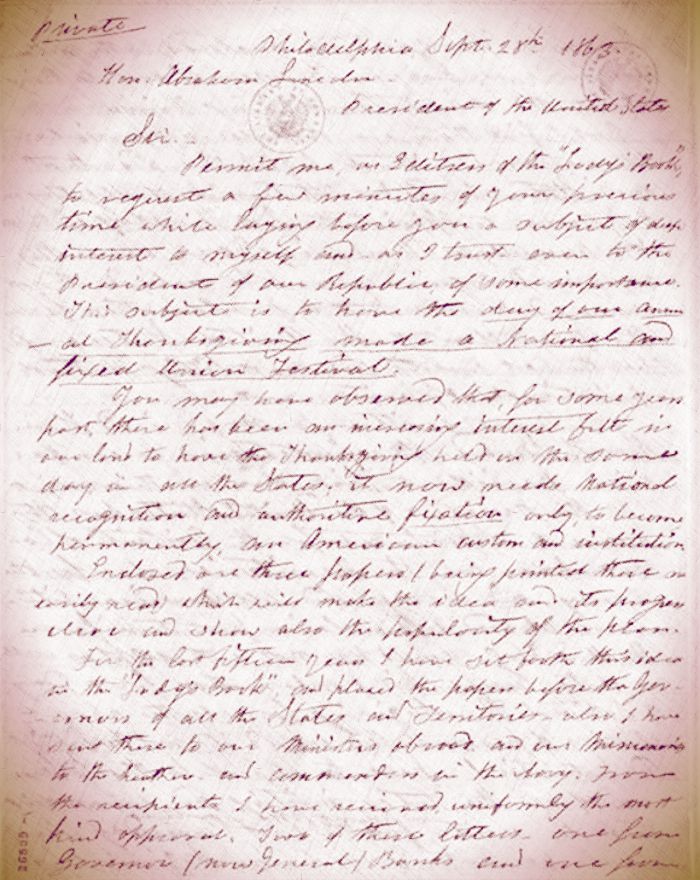 Private
Philadelphia, Sept. 28th 1863.
Hon. Abraham Lincoln
President of the United States
Sir.
Permit me, as Editress of the "Lady's Book",
to request a few minutes of your precious
time, while laying before you a subject of deep
interest to myself and as I trust even to the
President of our Republic, of some importance.
This subject is to have the day of our annu-
al Thanksgiving made a National and
fixed Union Festival.
You may have observed that, for some years
past, there has been an increasing interest felt in
our land to have the Thanksgiving held on the same
day, in all the States; it now needs National
recognition and authoritive fixation, only, to become
permanently, an American custom and institution.
Enclosed are three papers (being printed these are
easily read) which will make the idea and its progress
clear and show also the popularity of the plan.
For the last fifteen years I have set forth this idea
in the "Lady's Book", and placed the papers before the Gov-
ernors of all the States and Territories also I have
sent these to our Ministers abroad, and our Missionaries
to the heathen and commanders in the Navy. From
the recipients I have received, uniformly the most
kind approval. Two of these letters, one from
Governor (now General) Banks and one from
26509